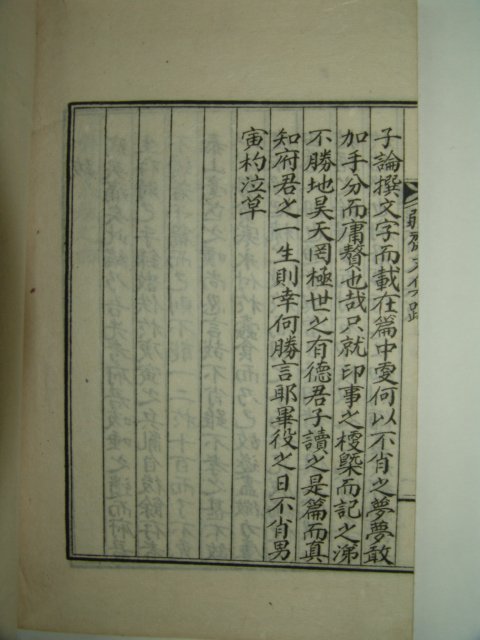 子論撰文字而載在篇中更何以不肖之夢夢敢
加手分而庸贅也哉只就印事之櫌槩而記之涕
不勝地昊天罔極世之有德君子讀之是篇而真
知府君之一生則幸何勝言耶畢役之日不肖男
寅杓泣草